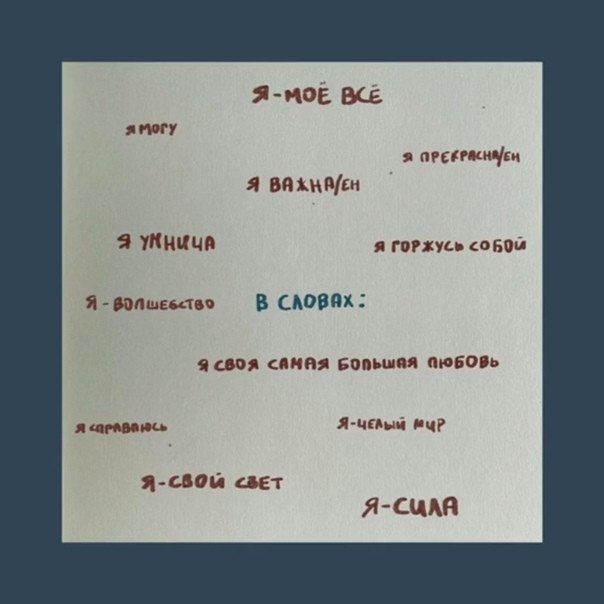 Я-МОЁ ВСЁ
Я МОГУ
Я ПРЕКРАСНА/ЕН
Я ВАЖНА/ЕН
Я УМНИЦА
Я ГОРЖУСЬ СОБОЙ
Я-ВОЛШЕБСТВО
В СЛОВАХ:
Я СВОЯ САМАЯ БОЛЬШАЯ ЛЮБОВЬ
Я СПРАВЛЯЮСЬ
Я-ЦЕЛЫЙ МИР
Я-СВОЙ СВЕТ
Я-СИЛА